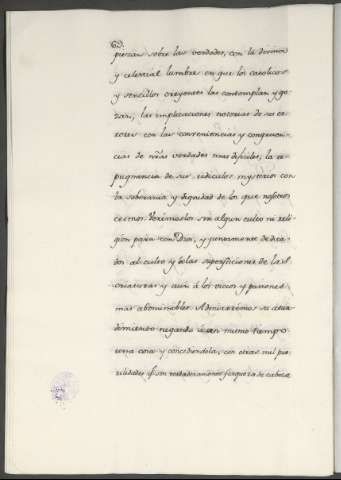 piezan sobre las verdades, con la divina
y celestial lumbre en que los catolicos
y sencillos creyentes las contemplan y go-
zan, las implicaciones notorias de sus er-
rores con las conveniencias y congruen-
cias de nr̃as verdades mas dificiles, la re-
pugnancia de sus ridiculos mysterios con
la soberania y dignidad de los que nosotros
creemos. Veremoslos sin algun culto ni reli-
gion para con Dios, y juntamente de dica-
dos al culto y supersticiones de las
criaturas y aun á los vicios y pasiones
mas abominables. Admiraremos su
negando á un mesmo tiempo
una cosa y concediendola, con otras mil pue-
rilidades q̃ son verdaderamente flaqueza de cabeza